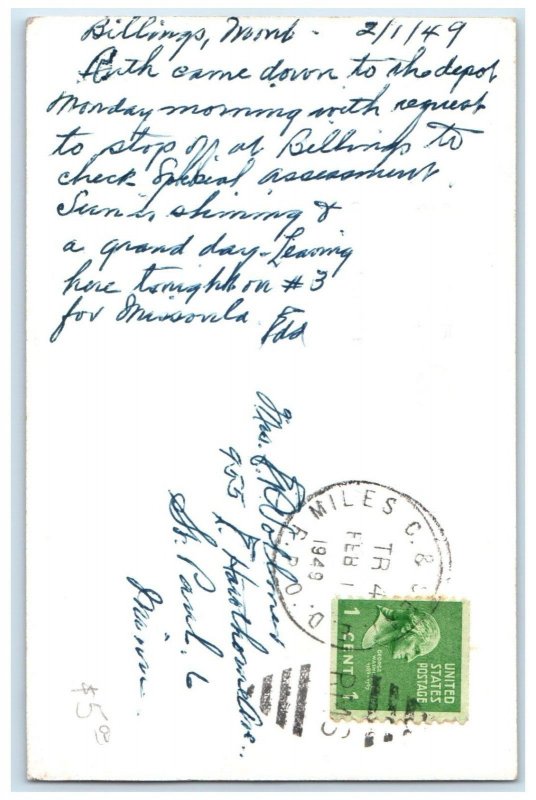 Billings, Mont - 2/1/49
Ruth came down to the depot
Monday morning with request
to stop off at Billings to
check Special assessment.
Sun is shining &
a grand day - Leaving
here tonight on #3
for Missoula Edd
Mrs. E.
955 E. Hawthorne Ave.
St. Paul. 6
Minn.
MILES C. &
TR 4
FEB 1
1949
R.P.O.
UNITED
STATES
POSTAGE
1 CENT 1
$5.00